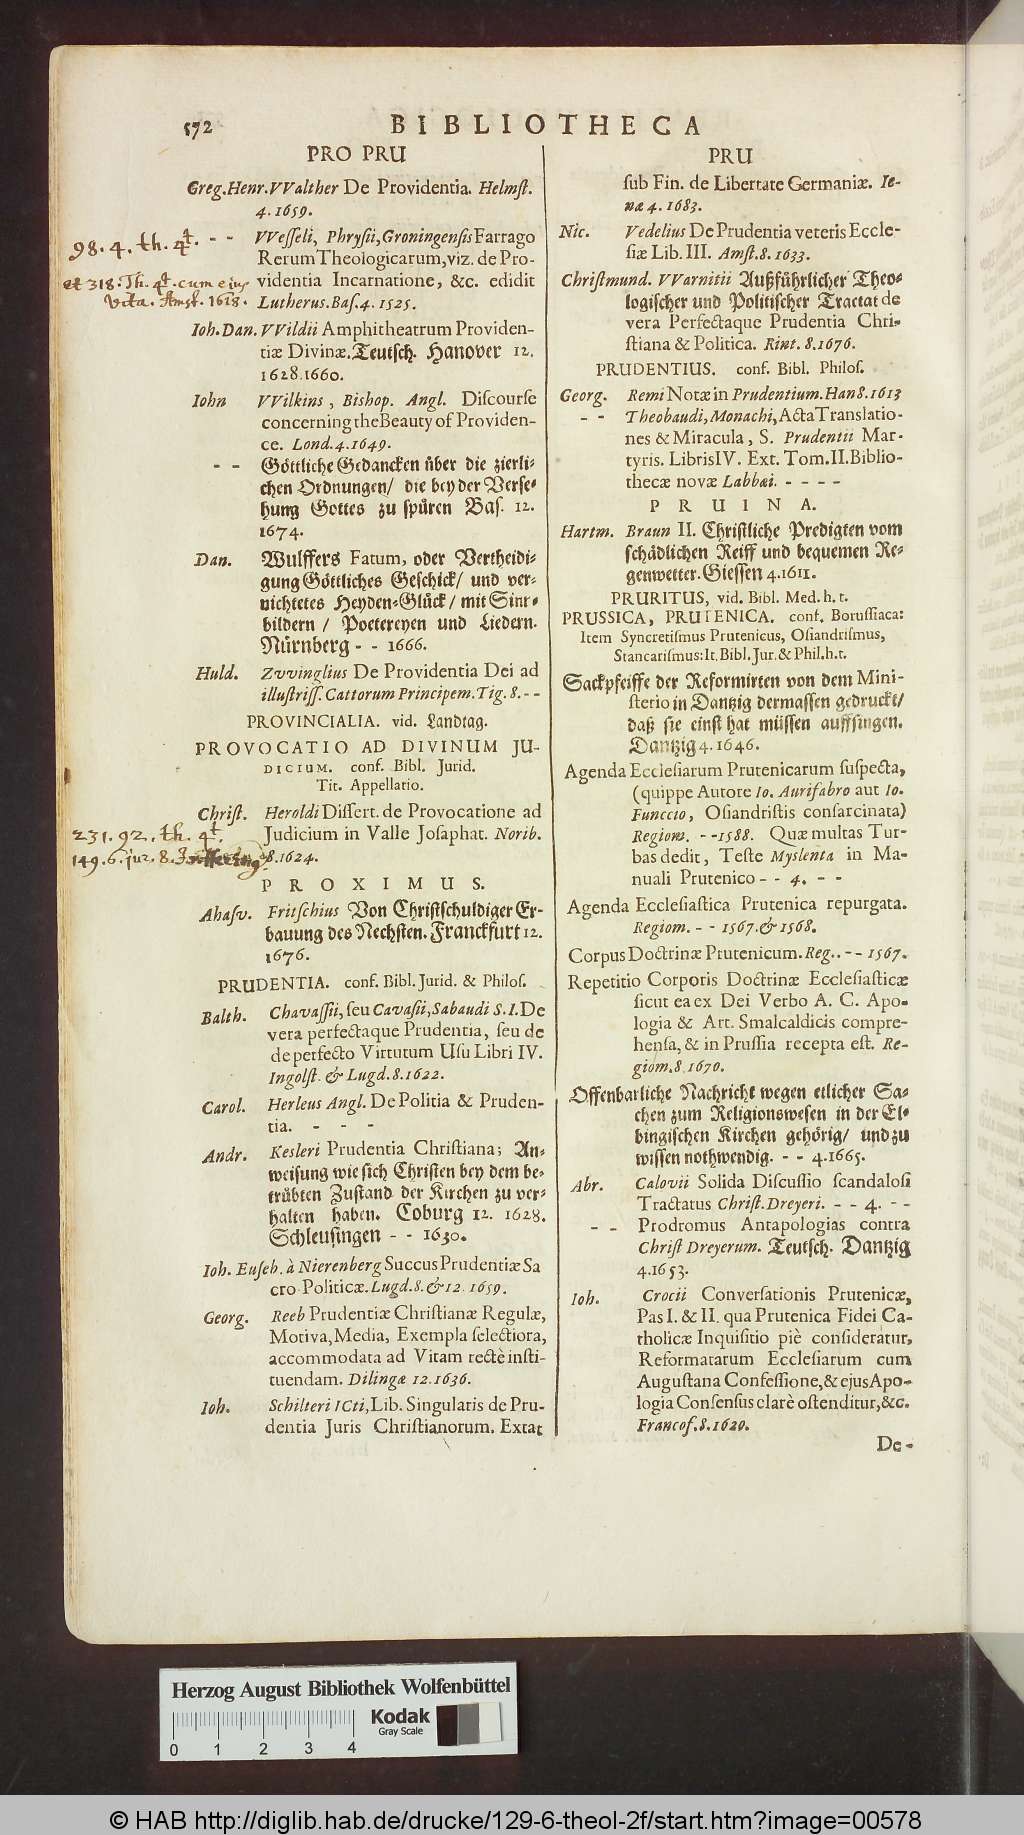 572
BIBLIOTHECA
PRO PRU
Greg.Henr.VValther De Providentia. Helmſt.
4.1659.
98.4. th. 4t. - - VVeſſeli, Phryſii,Groningenſis Farrago
Rerum Theologicarum,viz. de Pro-
et 318. Th. 4t. cum ejus videntia Incarnatione, &c. edidit
vita. Amst. 1618. Lutherus.Baſ.4. 1525.
Ioh.Dan. VVildii Amphitheatrum Providen-
tiæ Divinæ.Teutſch. Hanover 12.
1628.1660.
Iohn VVilkins, Bishop. Angl. Diſcourſe
concerning the Beauty of Providen-
ce. Lond.4.1649.
- - Göttliche Gedancken über die zierli-
chen Ordnungen/ die bey der Verſe-
hung Gottes zu ſpüren Baſ. 12.
1674.
Dan. Wulffers Fatum, oder Vertheidi-
gung Göttliches Geſchick/ und ver-
nichtetes Heyden-Glück/ mit Sinr-
bildern / Poetereyen und Liedern.
Nürnberg - - 1666.
Huld. Zvvinglius De Providentia Dei ad
illuſtriſſ.Cattorum Principem.Tig.8.- -
PROVINCIALIA. vid. Landtag.
PROVOCATIO AD DIVINUM JU-
DICIUM. conf. Bibl. Jurid.
Tit. Appellatio.
Chriſt. Heroldi Diſſert. de Provocatione ad
231.92. th. 4t. Judicium in Valle Joſaphat. Norib.
149.6. jur. 8. 8.1624.
PROXIMUS.
Ahaſv. Fritſchius Von Chriſtſchuldiger Er-
bauung des Nechſten. Franckfurt 12.
1676.
PRUDENTIA. conf. Bibl. Jurid. & Philoſ.
Balth. Chavaſſii, ſeu Cavaſii,Sabaudi S.I. De
vera perfectaque Prudentia, ſeu de
de perfecto Virtutum Uſu Libri IV.
Ingolſt. & Lugd.8.1622.
Carol. Herleus Angl. De Politia & Pruden-
tia. - - -
Andr. Kesleri Prudentia Chriſtiana; An-
weiſung wie ſich Chriſten bey dem be-
trübten Zuſtand der Kirchen zu ver-
halten haben. Coburg 12. 1628.
Schleuſingen - - 1630.
Ioh. Euſeb. à Nierenberg Succus Prudentiæ Sa
cro Politicæ.Lugd.8.& 12. 1659.
Georg. Reeb Prudentiæ Chriſtianæ Regulæ,
Motiva, Media, Exempla ſelectiora,
accommodata ad Vitam rectè inſti-
tuendam. Dilingæ 12.1636.
Ioh. Schilteri ICti, Lib. Singularis de Pru-
dentia Juris Chriſtianorum. Extat
PRU
ſub Fin. de Libertate Germaniæ. Ie-
næ 4. 1683.
Nic. Vedelius De Prudentia veteris Eccle-
ſiæ Lib. III. Amſt.8. 1633.
Chriſtmund. VVarnitii Außführlicher Theo-
logiſcher und Politiſcher Tractat de
vera Perfectaque Prudentia Chri-
ſtiana & Politica. Rint. 8.1676.
PRUDENTIUS. conf. Bibl. Philoſ.
Georg. Remi Notæ in Prudentium. Han8.1613
- - Theobaudi, Monachi, Acta Translatio-
nes & Miracula, S. Prudentii Mar-
tyris. Libris IV. Ext. Tom.II.Biblio-
thecæ novæ Labbæi. - - - -
PRUINA.
Hartm. Braun II. Chriſtliche Predigten vom
ſchädlichen Reiff und bequemen Re-
genwetter. Gieſſen 4.1611.
PRURITUS, vid. Bibl. Med. h. t.
PRUSSICA, PRUTENICA. conf. Boruſſiaca:
Item Syncretiſmus Prutenicus, Oſiandriſmus,
Stancariſmus: It. Bibl. Jur. & Phil. h. t.
Sackpfeiffe der Reformirten von dem Mini-
ſterio in Dantzig dermaſſen gedruckt/
daß ſie einſt hat müſſen auffſingen.
Dantzig 4. 1646.
Agenda Eccleſiarum Prutenicarum ſuſpecta,
(quippe Autore Io. Aurifabro aut Io.
Funccio, Oſiandriſtis conſarcinata)
Regiom. - -1588. Quæ multas Tur-
bas dedit, Teſte Myslenta in Ma-
nuali Prutenico - - 4. - -
Agenda Eccleſiaſtica Prutenica repurgata.
Regiom. - - 1567.& 1568.
Corpus Doctrinæ Prutenicum. Reg.. - - 1567.
Repetitio Corporis Doctrinæ Eccleſiaſticæ
ſicut ea ex Dei Verbo A. C. Apo-
logia & Art. Smalcaldicis compre-
henſa, & in Pruſſia recepta eſt. Re-
giom.8.1670.
Offenbarliche Nachricht wegen etlicher Sa-
chen zum Religionsweſen in der El-
bingiſchen Kirchen gehörig/ und zu
wiſſen nothwendig. - - 4.1665.
Abr. Calovii Solida Diſcuſſio ſcandaloſi
Tractatus Chriſt. Dreyeri. - - 4. - -
- - Prodromus Antapologias contra
Chriſt Dreyerum. Teutſch. Dantzig
4.1653.
Ioh. Crocii Converſationis Prutenicæ,
Pas I. & II. qua Prutenica Fidei Ca-
tholicæ Inquiſitio piè conſideratur,
Reformatarum Eccleſiarum cum
Auguſtana Confeſſione, & ejus Apo-
logia Conſenſus clarè oſtenditur, &c.
Francof.8.1620.
De-
Herzog August Bibliothek Wolfenbüttel
Kodak
Gray Scale
0 1 2 3 4
© HAB http://diglib.hab.de/drucke/129-6-theol-2f/start.htm?image=00578